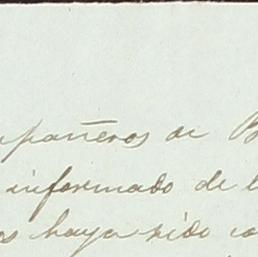 mpañeros de B
informado de l
os haya sido co